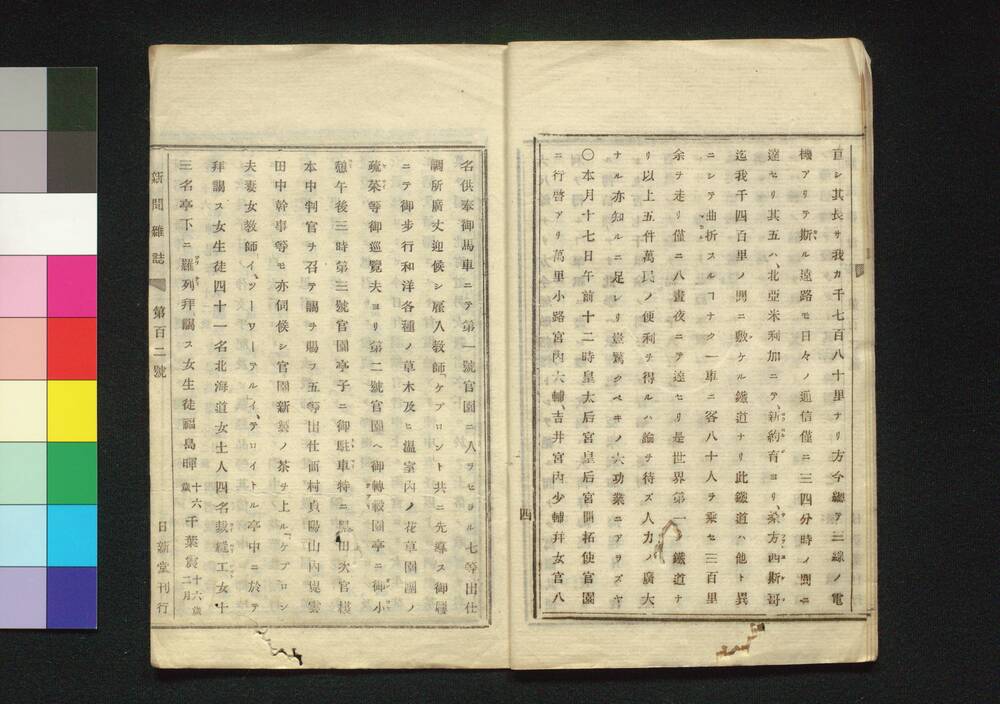 亘シ其長サ我カ千七百八十里ナリ方今總テ三線ノ電
機アリテ斯ル遠路モ日々ノ通信僅ニ三四分時ノ間ニ
達セリ其五ハ北亞米利加ニテ新約育ヨリ桑方西斯哥
迄我千四百里ノ間ニ敷ケル鐵道ナリ此鐵道ハ他ト異
ニシテ曲折スルヿナク一車ニ客八十人ヲ乘セ三百里
余ヲ走リ僅ニ八晝夜ニテ達セリ是世界第一ノ鐵道ナ
リ以上五件萬民ノ便利ヲ得ルハ論ヲ待ズ人力ノ廣大
ナル亦知ルニ足レリ豈驚クベキノ大功業ニアラズヤ
〇本月十七日午前十二時皇太后宮皇后宮開拓使官園
ニ行啓アリ萬里小路宮内大輔、吉井宮内少輔拜女官八
四
名供奉御馬車ニテ第一號官園ニ入ラセラル七等出仕
調所廣丈迎候シ雇入教師「ケプロント共ニ先導ス御園
ニテ御歩行和洋各種ノ草木及ヒ温室内ノ花草園圃ノ
蔬菜等御巡覽夫ヨリ第二號官園ヘ御轉輦園亭ニ御小
憩午後三時第三號官園亭子ニ御駐車特ニ黒田次官榎
本中判官ヲ召テ謁ヲ賜フ五等出仕西村貞陽山内堤雲
田中幹事等モ亦伺候シ官園新製ノ茶ヲ上ル「ケプロン
夫妻女教師イ、ツーワーテルイ、デロイトル亭中ニ於テ
拜謁ス女生徒四十一名北海道女土人四名裁縫工女十
三名亭下ニ羅列拜謁ス女生徒福島暉十六歳千葉震十六歳二月
新聞雜誌 第百二號 日新堂刊行